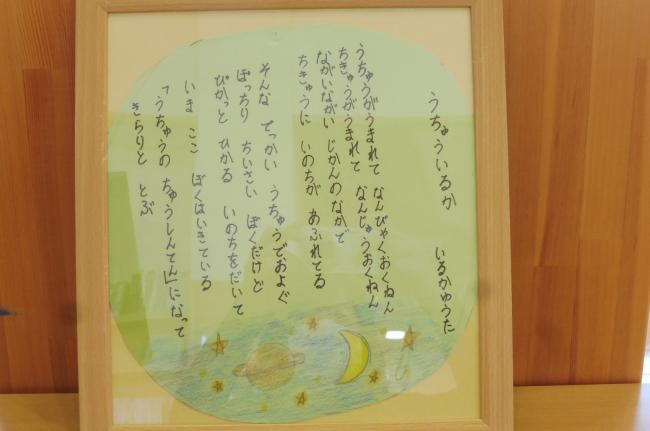 うちゅういるか　いるかゆうた
うちゅうがうまれて なんびゃくおくねん
ちきゅうがうまれて なんじゅうおくねん
ながいながい じかんのなかで
ちきゅうに いのちが あふれてる
そんな でっかい うちゅうでおよぐ
ぽっちり ちいさい ぼくだけど
ぴかっと ひかる いのちをだいて
いま ここ ぼくはいきている
「うちゅうの ちゅうしんてん」になって
きらりと とぶ